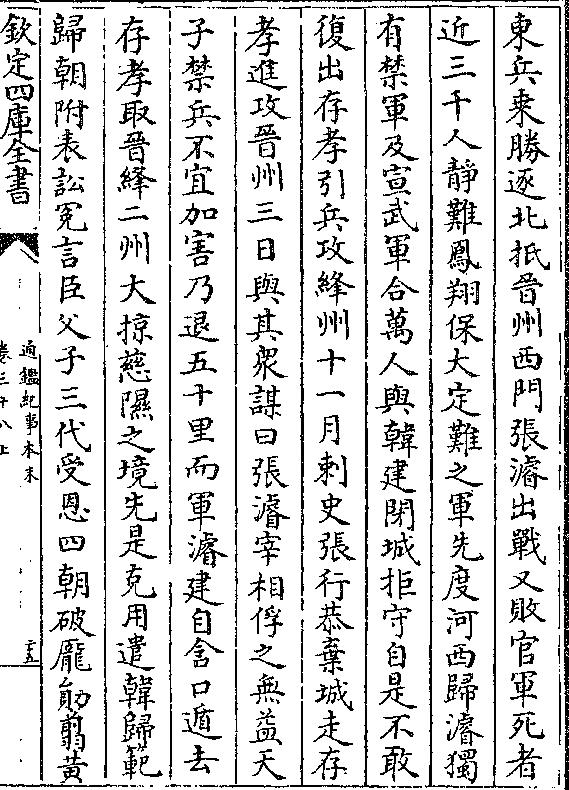 東兵乗勝逐北抵晉州西門張濬出戰又敗官軍死者
近三千人靜難鳳翔保大定難之軍先度河西歸濬獨
有禁軍及宣武軍合萬人與韓建閉城拒守自是不敢
復出存孝引兵攻絳州十一月刺史張行恭棄城走存
孝進攻晉州三日與其衆謀曰張濬宰相俘之無益天
子禁兵不宜加害乃退五十里而軍濬建自含口遁去
存孝取晉絳二州大掠慈隰之境先是克用遣韓歸範
歸朝附表訟冤言臣父子三代受恩四朝破龐勛翦黃
欽定四庫全書
通鑑紀事本末
卷三十八上
十五